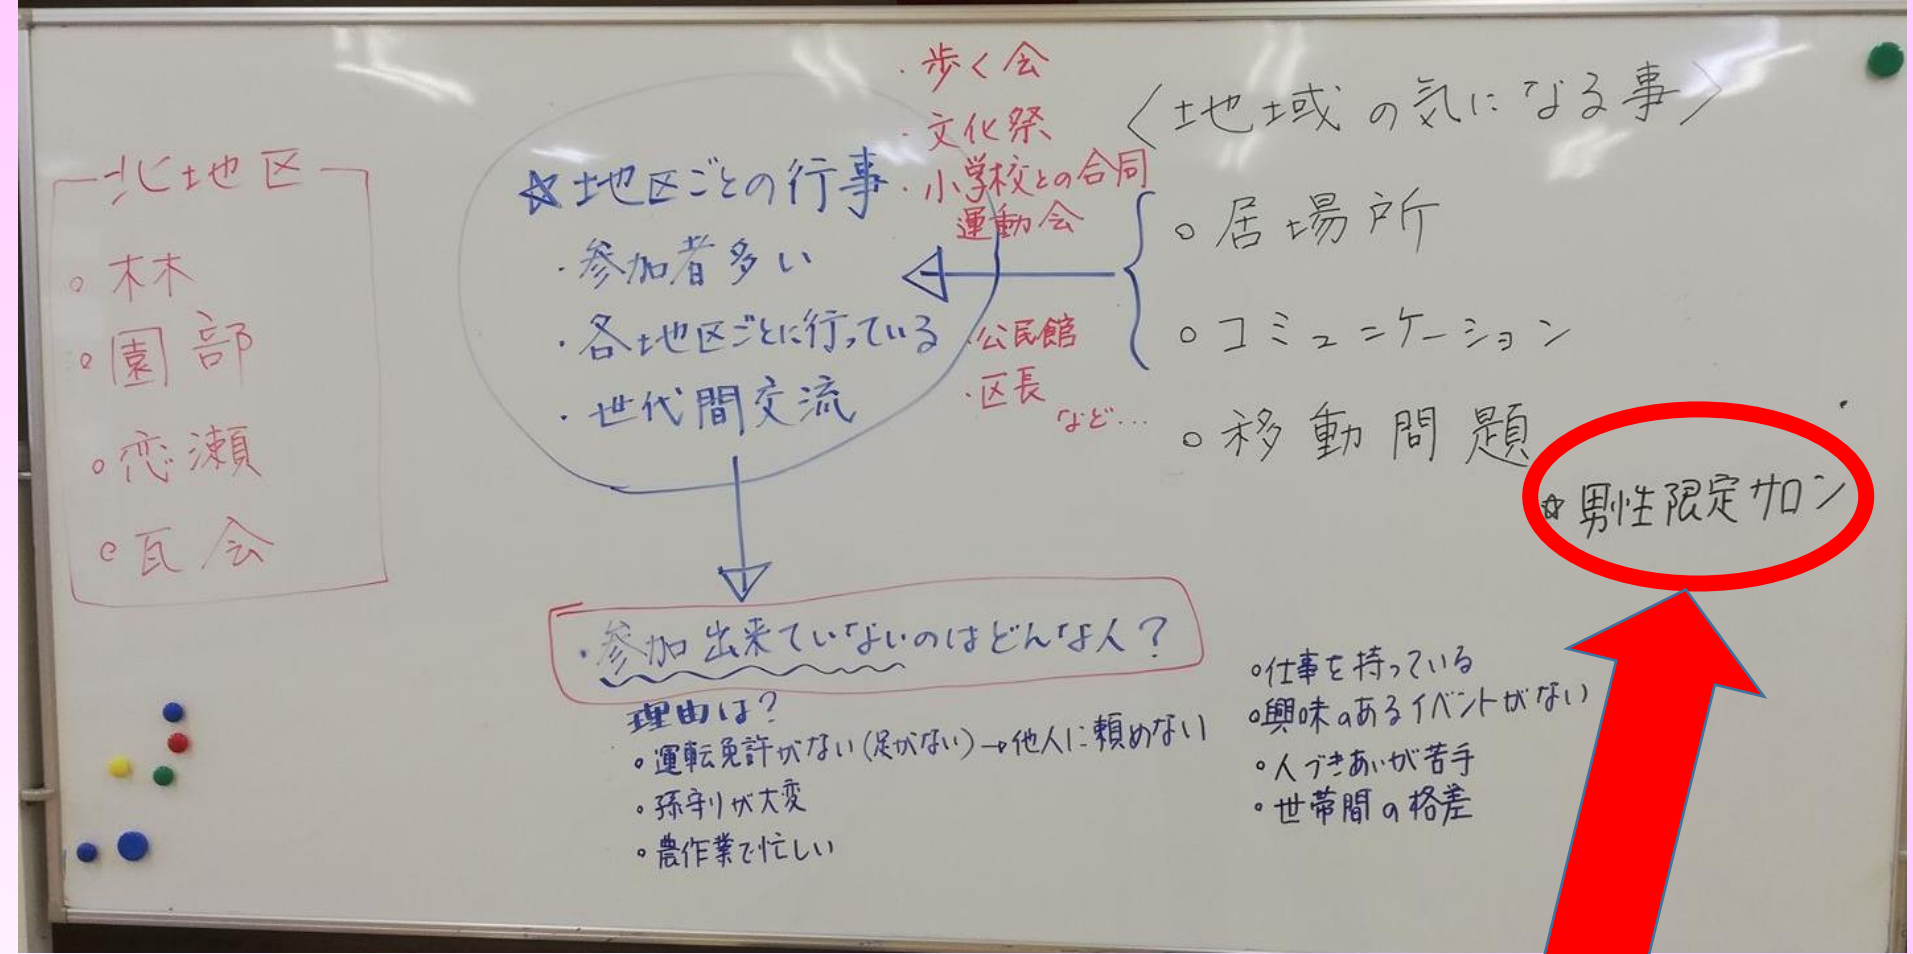 北地区
○林
○園部
○恋瀬
○瓦会
☆地区ごとの行事
・参加者多い
・各地区ごとに行っている
・世代間交流
・歩く会
・文化祭
・小学校との合同
運動会
・公民館
・区長
など…
〈地域の気になる事〉
○居場所
○コミュニケーション
○移動問題
☆男性限定サロン
・参加出来ていないのはどんな人？
理由は？
○運転免許がない(足がない)→他人に頼めない
○孫守りが大変
○農作業で忙しい
○仕事を持っている
○興味のあるイベントがない
○人づきあいが苦手
○世帯間の格差